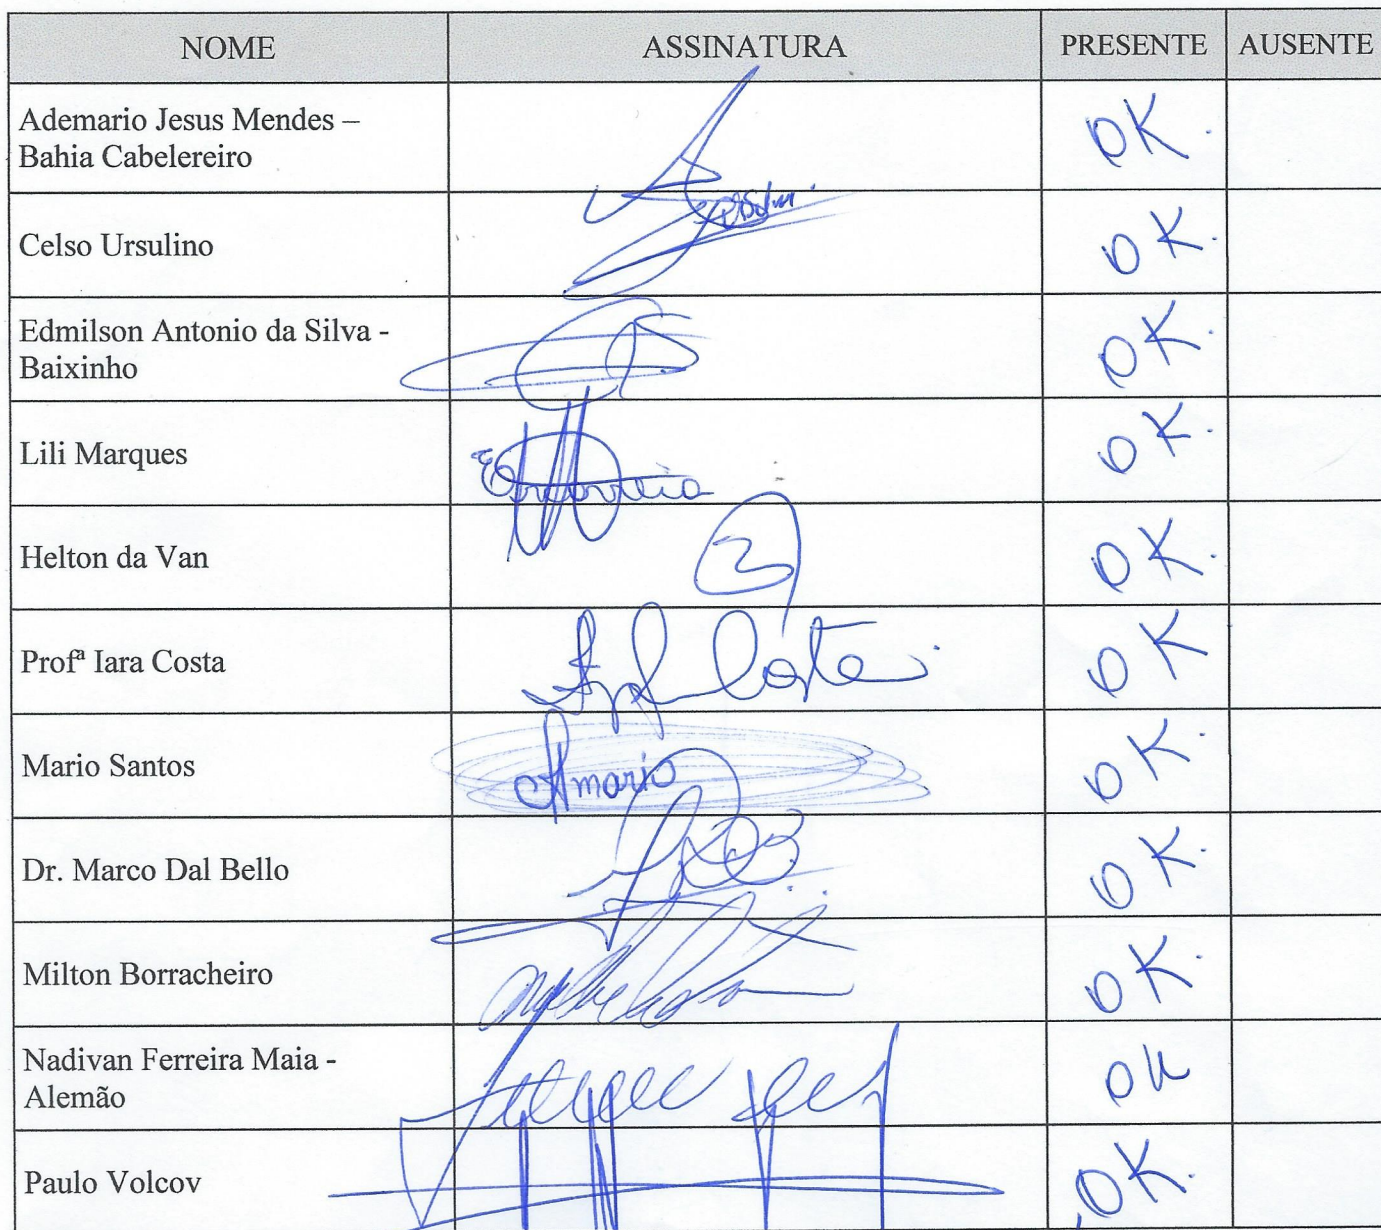 NOME ASSINATURA PRESENTE AUSENTE
Ademario Jesus Mendes –
Bahia Cabelereiro
OK.
Celso Ursulino
OK.
Edmilson Antonio da Silva -
Baixinho
OK.
Lili Marques
OK.
Helton da Van
OK.
Profª Iara Costa
Costa
OK
Mario Santos
mario
OK.
Dr. Marco Dal Bello
OK.
Milton Borracheiro
OK.
Nadivan Ferreira Maia -
Alemão
OK
Paulo Volcov
OK.